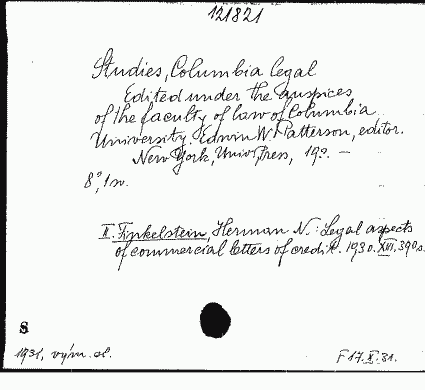 121821
Studies, Columbia legal
Edited under the auspices
of the faculty of law of Columbia
University. Edwin W. Patterson, editor.
New York, Univ. Press, 19?. —
8°, 1 sv.
II. Finkelstein, Herman N.: Legal aspects
of commercial letters of credit. 1930. XVI, 390 s.
S
1931, vým. el.
F 17.X.31.